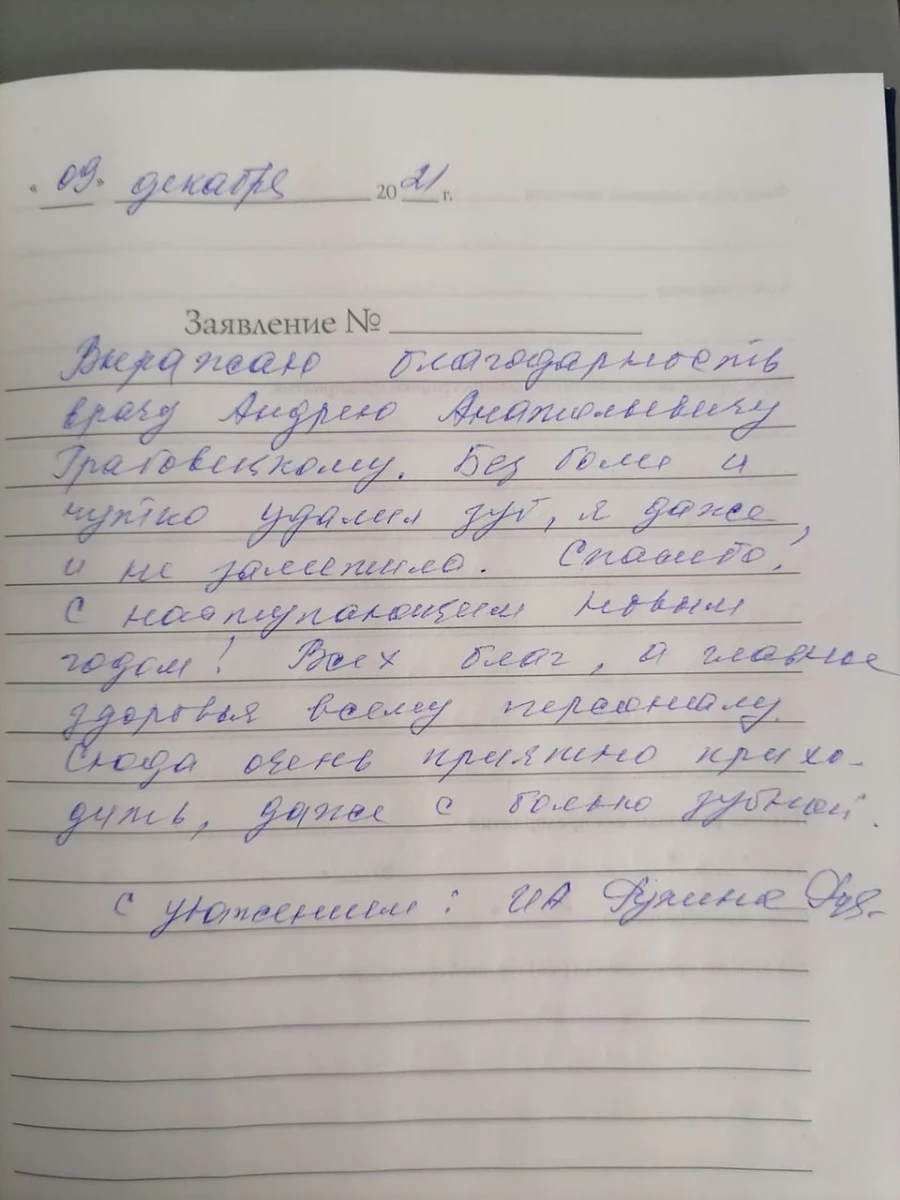 « 09 » декабря 2021 г.
Заявление №
Выражаю благодарность
врачу Андрею Анатольевичу
Грабовецкому. Без боли и
чутко удалил зуб, я даже
и не заметила. Спасибо!
С наступающим новым
годом! Всех благ, а главное
здоровья всему персоналу.
Сюда очень приятно прихо-
дить, даже с болью зубной.
С уважением: ИА